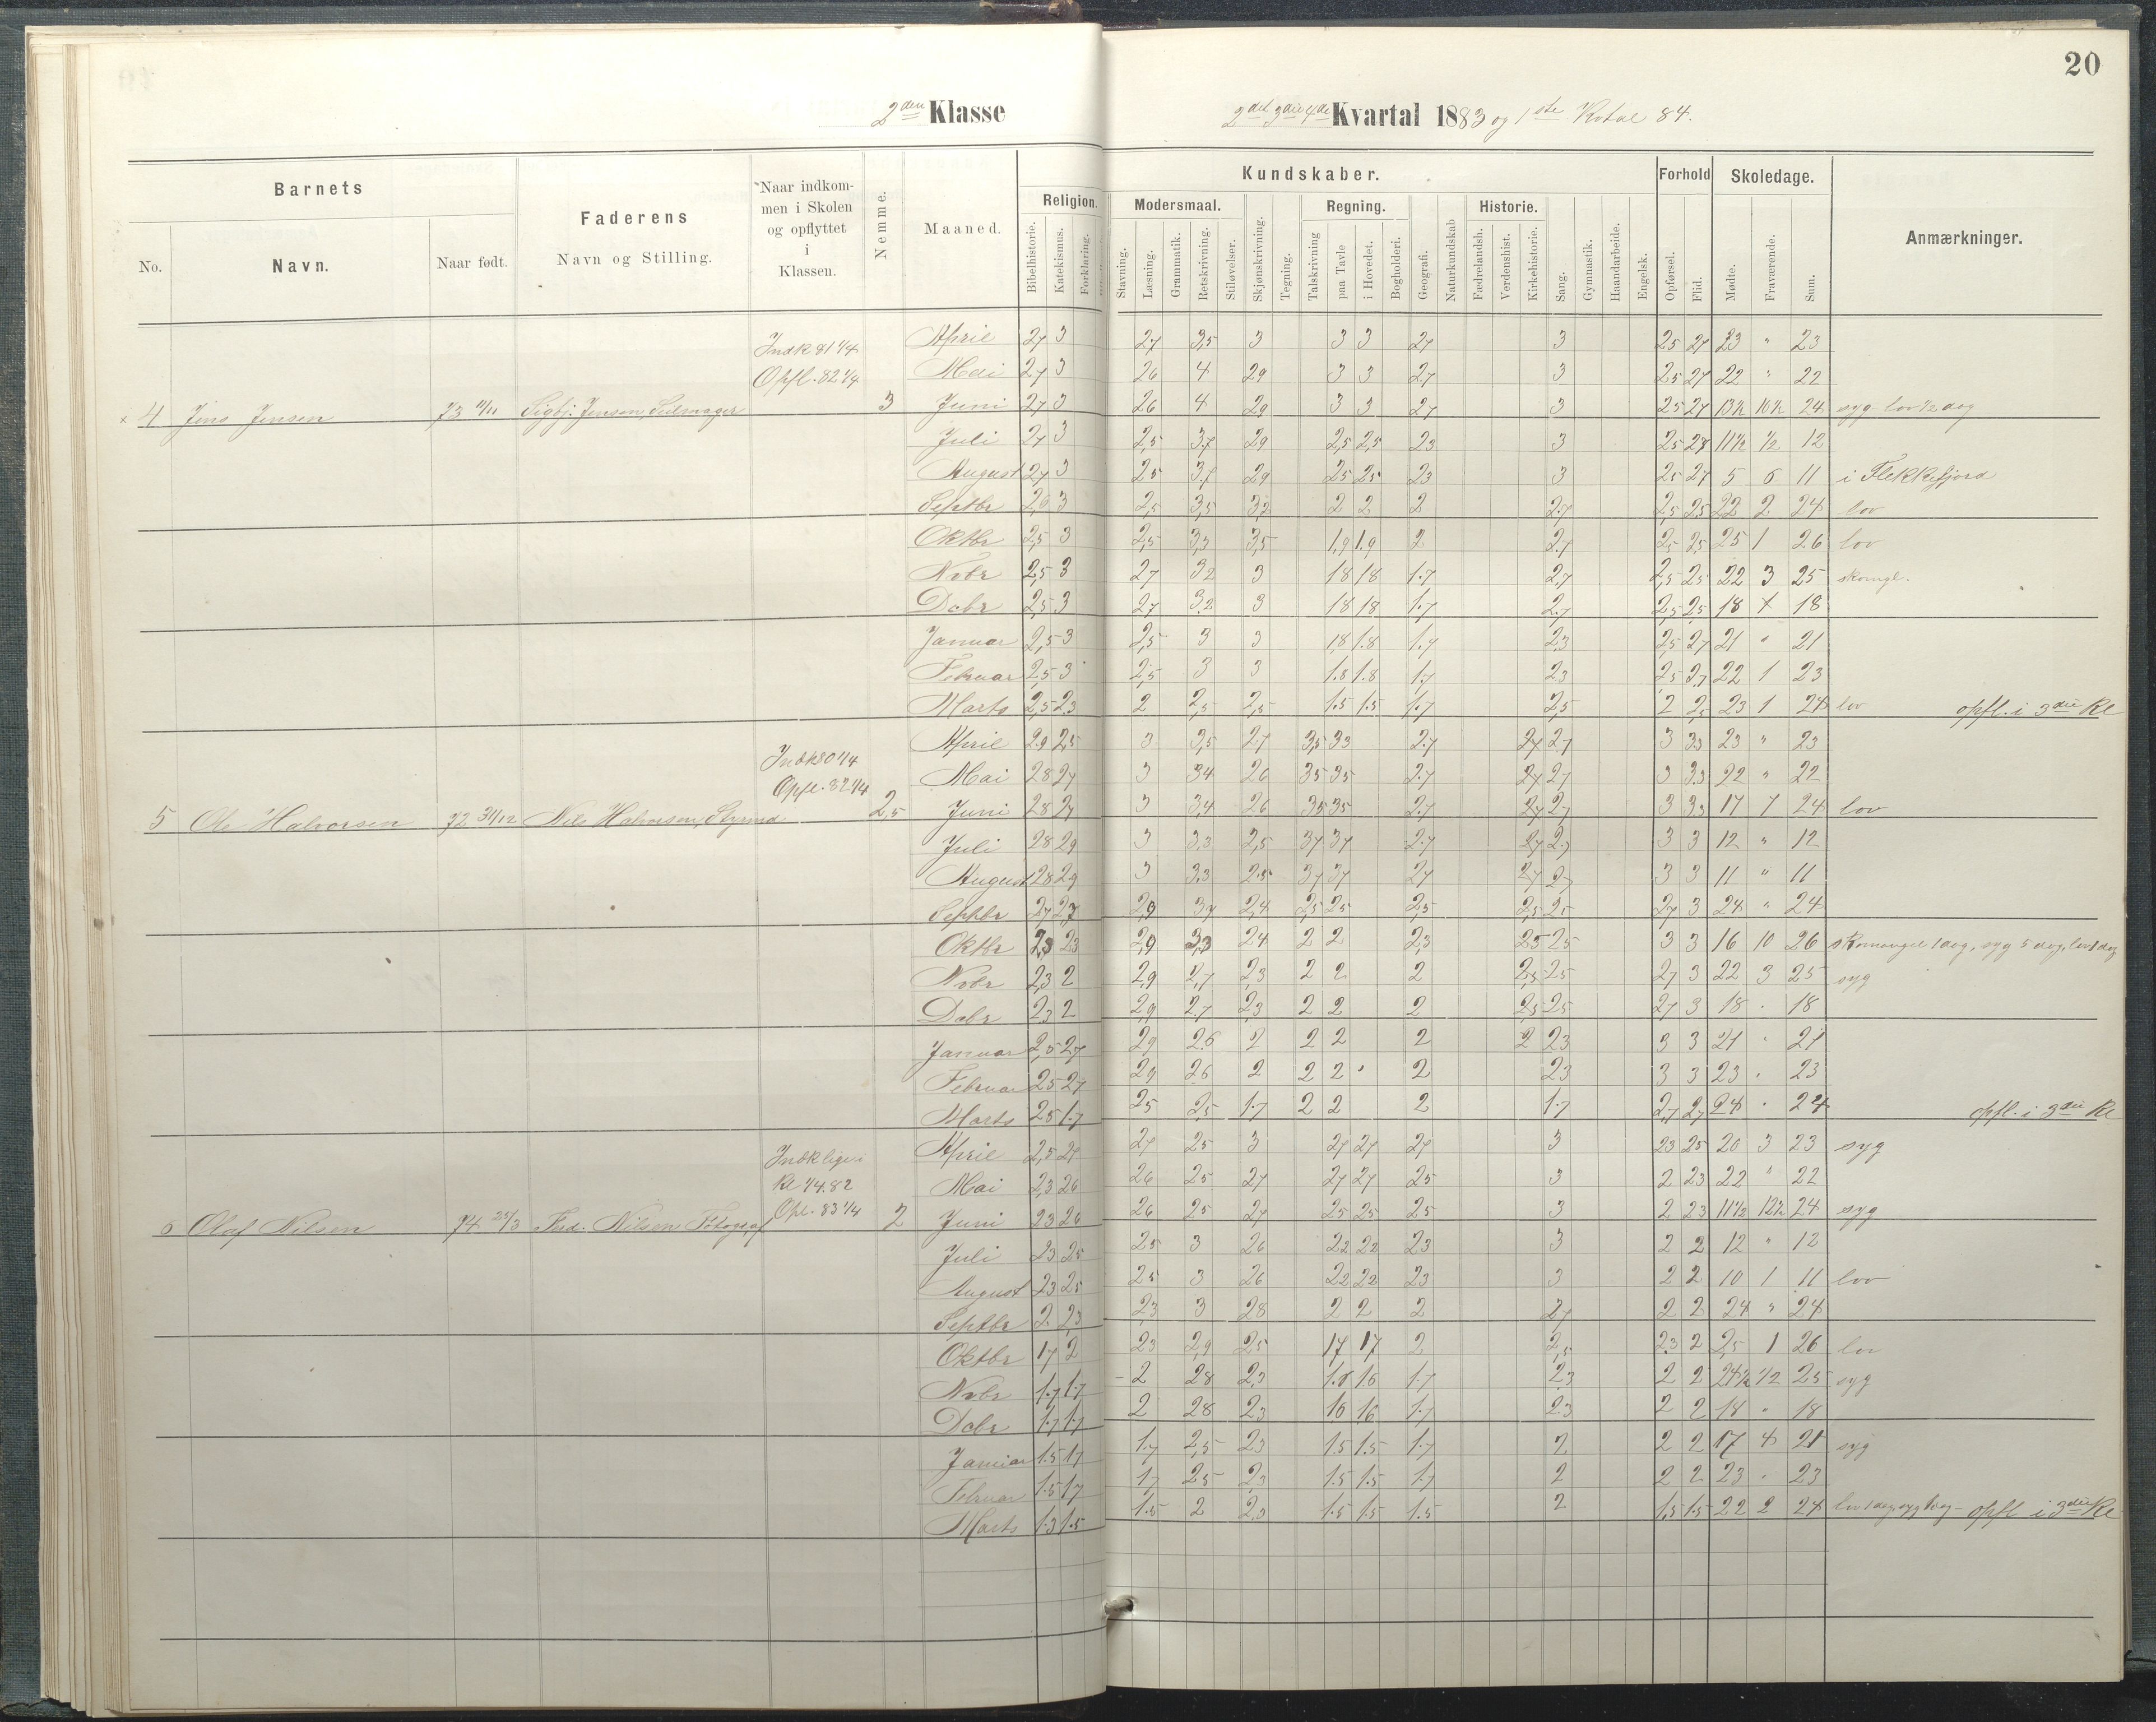 20
2den Klasse
2det 3die 4de Kvartal 1883 og 1ste Kvtal 84.
Barnets
No.
Navn.
Naar født.
Faderens
Navn og Stilling.
Naar indkommen i Skolen og opflyttet i Klassen.
Nemme.
Maaned.
Kundskaber.
Religion.
Bibelhistorie.
Katekismus.
Forklaring.
Modersmaal.
Stavning.
Læsning.
Grammatik.
Retskrivning.
Stiløvelser.
Skjønskrivning.
Tegning.
Regning.
Talskrivning
paa Tavle
i Hovedet.
Bogholderi.
Geografi.
Naturkundskab
Historie.
Fædrelandsh.
Verdenshist.
Kirkehistorie.
Sang.
Gymnastik.
Haandarbeide.
Engelsk.
Forhold
Opførsel.
Flid.
Skoledage.
Mødte.
Fraværende.
Sum.
Anmærkninger.
Indk 81 1/4
Opfl. 82 1/4
April 27 3 27 3,5 3 3 3 27 3 25 27 23 " 23
Mai 27 3 26 4 29 3 3 27 3 25 27 22 " 22
× 4 Jens Jensen 73 11/11 Sigbj. Jensen, Seilmager 3 Juni 27 3 26 4 29 3 3 27 3 25 27 13½ 10½ 24 syg - lov ½ dag
Juli 27 3 2,5 3,7 29 2,5 2,5 23 3 25 27 11½ ½ 12
August 27 3 25 3,7 29 25 25 23 3 25 27 5 6 11 i Flekkefjord
Septbr 2,6 3 2,5 3,5 3,2 2 2 2 2,7 2,5 25 22 2 24 lov
Oktbr 2,5 3 2,5 3,3 3,5 1,9 1.9 2 2,7 25 25 25 1 26 lov
Nvbr 2,5 3 27 32 3 18 18 1.7 2,7 2,5 25 22 3 25 skomgl.
Dcbr 2,5 3 27 3.2 3 18 18 1.7 2.7 25 2,5 18 18
Januar 2,5 3 2,5 3 3 1,8 1.8 1.7 23 25 27 21 " 21
Februar 2,5 3 2,5 3 3 1.8 1.8 1.7 23 25 27 22 1 23
Marts 2,5 2,3 2 2,5 2,5 1.5 1.5 1.7 2,5 2 2,5 23 1 24 lov opfl. i 3die Kl
Indk 80 1/4
Opfl. 82 1/4
April 2.9 2,5 3 3,5 2.7 3,5 33 2.7 27 27 3 33 23 " 23
Mai 28 27 3 34 26 35 35 2.7 27 27 3 33 22 " 22
5 Ole Halvorsen 72 31/12 Nils Halvorsen, Styrmd 2,5 Juni 28 27 3 3,4 26 35 35 2.7 27 27 3 33 17 7 24 lov
Juli 28 29 3 3,3 2,5 37 37 2.7 27 27 3 3 12 " 12
August 28 29 3 3.3 25 37 37 27 27 27 3 3 11 " 11
Septbr 27 2,7 2,9 37 2,4 2,5 25 2,5 2,5 25 27 3 24 " 24
Oktbr 2,3 23 2,9 3,3 24 2 2 2,3 25 25 3 3 16 10 26 skomangel 1 dag, syg 5 dag, lov 1 dag
Nvbr 2,3 2 2,9 2,7 2,3 2 2 2 2,5 25 27 3 22 3 25 syg
Dcbr 2,3 2 2,9 2.7 2,3 2 2 2 25 25 27 3 18 . 18
Januar 2,5 27 29 2.6 2 2 2 2 2 23 3 3 21 " 21
Februar 25 27 29 26 2 2 2 2 23 3 3 23 . 23
Marts 25 1.7 25 25 1.7 2 2 2 1.7 2,7 27 24 . 24 opfl. i 3die Kl
Kl 1/4.82
Opl. 83 1/4
April 2,5 27 27 25 3 27 27 27 3 23 25 20 3 23 syg
Mai 2,3 26 26 25 27 27 27 25 3 2 23 22 " 22
6 Olaf Nilsen 74 25/3 Fred. Nilsen Fotograf 2 Juni 23 26 26 25 27 25 25 25 3 2 23 11½ 12½ 24 syg
Juli 23 25 25 3 26 22 22 23 3 2 2 12 " 12
August 23 25 25 3 26 22 22 23 3 2 2 10 1 11 lov
Septbr 2 23 2,3 3 28 2 2 2 27 2 2 24 " 24
Oktbr 17 2 23 2,9 25 17 17 2 2,5 23 2 25 1 26 lov
Nvbr 1.7 1.7 2 28 2,3 1.6 16 1.7 23 2 2 24½ ½ 25 syg
Dcbr 1.7 1.7 2 28 23 16 16 1.7 23 2 2 18 " 18
Januar 1.5 17 1.7 2,5 23 1.5 1.5 1.7 2 2 2 17 4 21 syg
Februar 1.5 17 17 25 2,3 1.5 1.5 1.7 2 2 2 23 . 23
Marts 1.3 1.5 1.5 2 2,3 1.5 1.5 1.5 2 1.5 1.5 22 2 24 lov 1 dag, syg 1 dag - opfl i 3die Kl